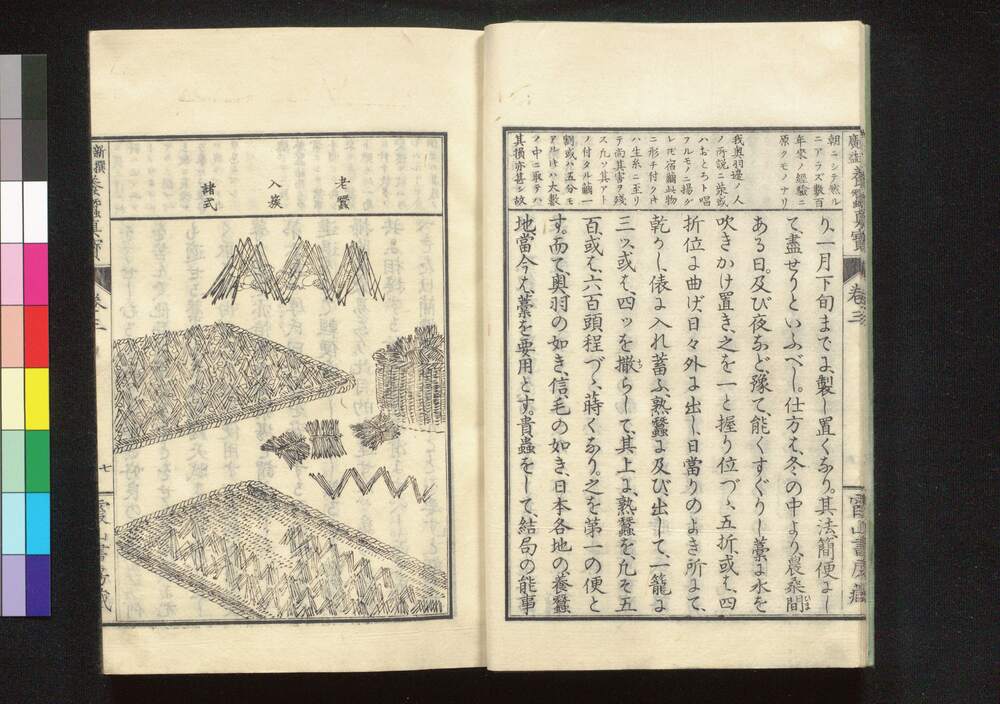 朝ニシテ能ル
ニアラズ数百
年来ノ経驗ニ
原クモノナリ
我奥羽邊ノ人
ノ所説ニ柴或
ハおどろト唱
フルモノニ揚グ
レバ宿繭此物
ニ形チ付クキ
ハ生糸ニ至リ
テ尚其害ヲ残
ス九ソ其アト
ノ付タル繭一
割或ハ五分モ
アルハ大数
ノ中ニ取テハ
其損亦甚シ故
り、一月下旬までに、製し置くなり。其法、簡便にし
て、盡せりといふべし。仕方は、冬の中より、農桑間
いま
ある日、及び夜など、豫て、能くすぐりし藁に水を
吹きかけ置き、之を一と握り位づゝ、五折或は、四
折位に曲げ、日々外に出し、日當りのよき所にて、
乾かし、俵に入れ蓄ふ、熟蠶に及び出して、一籠に
三ッ、或は、四ッを撒らして、其上に、熟蠶を、凡そ五
ち
百、或は、六百頭程づゝ、蒔くなり。之を第一の便と
す。而て、奥羽の如き、信、毛の如き、日本各地の養蠶
地、當今は、藁を要用とす。貴蟲をして、結局の能事
養蠶真寶
卷三
老蠶
入蔟
諸式
新撰養蠶真寶
卷三
七